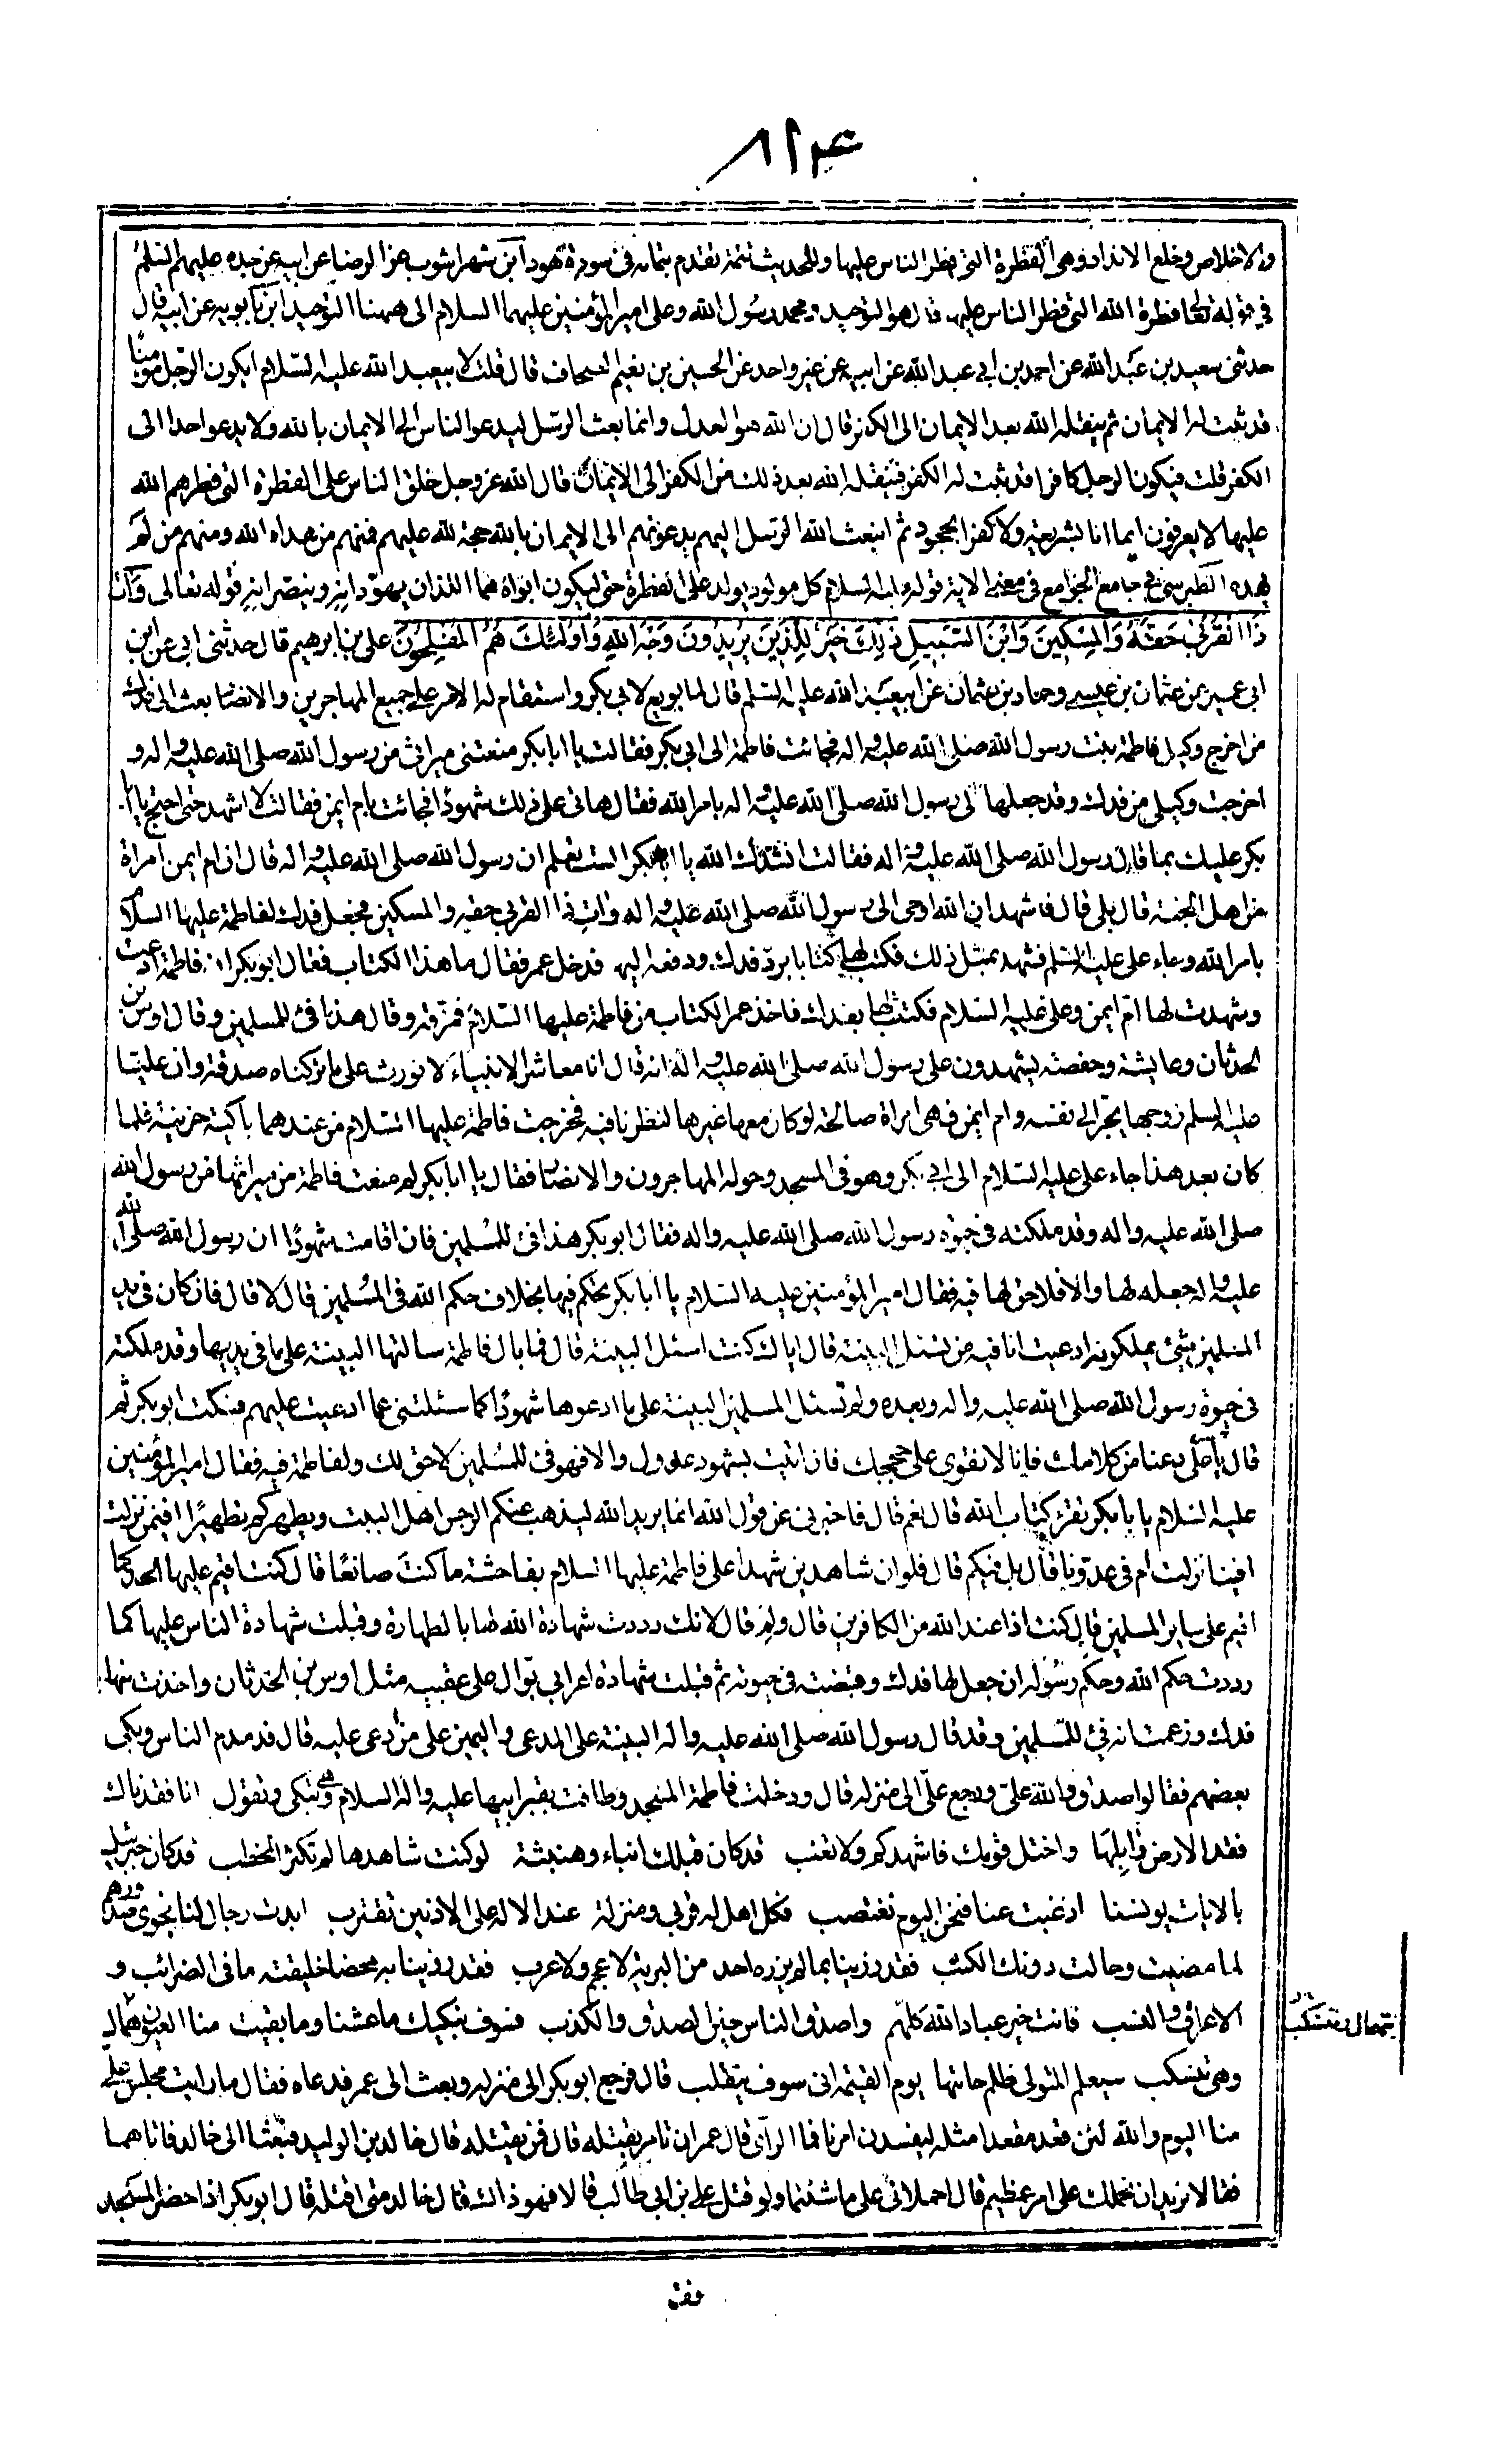 ٨١٤
والاخلاص وخلع الانداد وهى الفطرة التى فطر الناس عليها وللحديث تتمة تقدم بتمامه فى سورة هود ابن شهراشوب عن الرضا عن ابيه عن جده عليهم السلم
فى قوله تعالى فطرة الله التى فطر الناس عليها قال هو التوحيد ومحمد رسول الله وعلى امير المؤمنين عليهما السلام الى ههنا التوحيد ابن بابويه عن ابيه قال
حدثنى سعيد بن عبد الله عن احمد بن ابى عبد الله عن ابيه عن غير واحد عن الحسين بن نعيم الصحاف قال قلت لابيعبد الله عليه السلام ايكون الرجل مؤمنا
قد ثبت له الايمان ثم ينقله الله بعد الايمان الى الكفر قال ان الله هو العدل وانما بعث الرسل ليدعو الناس الى الايمان بالله ولا يدعو احدا الى
الكفر قلت فيكون الرجل كافرا قد ثبت له الكفر فينقله الله بعد ذلك من الكفر الى الايمان قال الله عز وجل خلق الناس على الفطرة التى فطرهم الله
عليها لا يعرفون ايمانا بشريعة ولا كفرا بجحود ثم ابتعث الله الرسل اليهم يدعونهم الى الايمان بالله حجة لله عليهم فمنهم من هداه الله ومنهم من لم
يهده الطبرسى فى جامع الجوامع فى معنى الاية قوله عليه السلام كل مولود يولد على الفطرة حتى ليكون ابواه هما اللذان يهودانه وينصرانه قوله تعالى وَآتِ
ذَا الْقُرْبَىٰ حَقَّهُ وَالْمِسْكِينَ وَابْنَ السَّبِيلِ ذَٰلِكَ خَيْرٌ لِلَّذِينَ يُرِيدُونَ وَجْهَ اللهِ وَأُولَٰئِكَ هُمُ الْمُفْلِحُونَ على بن ابرهيم قال حدثنى ابى عن ابن
ابى عمير عن عثمان بن عيسى وحماد بن عثمان عن ابيعبد الله عليه السلم قال لما بويع لابى بكر واستقام له الامر على جميع المهاجرين والانصار بعث الى فدك
من اخرج وكيل فاطمة بنت رسول الله صلى الله عليه واله فجائت فاطمة الى ابى بكر فقالت يا ابا بكر منعتنى ميراثى من رسول الله صلى الله عليه واله و
اخرجت وكيلى من فدك وقد جعلها لى رسول الله صلى الله عليه واله بامر الله فقال هاتى على ذلك شهودا فجائت بام ايمن فقالت لا اشهد حتى احتج يا ابا
بكر عليك بما قال رسول الله صلى الله عليه واله فقالت انشدك الله يا ابا بكر الست تعلم ان رسول الله صلى الله عليه واله قال ان ام ايمن امراة
من اهل الجنة قال بلى قال فاشهد ان الله اوحى الى رسول الله صلى الله عليه واله وات ذا القربى حقه والمسكين فجعل فدك لفاطمة عليها السلام
بامر الله وجاء على عليه السلم فشهد بمثل ذلك فكتب لها كتابا برد فدك ودفعه اليها فدخل عمر فقال ما هذا الكتاب فقال ابو بكر ان فاطمة ادعت
وشهدت لها ام ايمن وعلى عليه السلام فكتبت لها بفدك فاخذ عمر الكتاب من فاطمة عليها السلام فمزقه وقال هذا فئ للمسلمين وقال اوس بن
الحدثان وعايشة وحفصة يشهدون على رسول الله صلى الله عليه واله انه قال انا معاشر الانبياء لا نورث على ما تركناه صدقة وان عليا
عليه السلم زوجها يجر الى نفسه وام ايمن فهى امراة صالحة لو كان معها غيرها لنظرنا فيه فخرجت فاطمة عليها السلام من عندهما باكية حزينة فلما
كان بعد هذا جاء على عليه السلام الى ابى بكر وهو فى المسجد وحوله المهاجرون والانصار فقال يا ابا بكر لم منعت فاطمة من ميراثها من رسول الله
صلى الله عليه واله وقد ملكته فى حيوة رسول الله صلى الله عليه واله فقال ابو بكر هذا فئ للمسلمين فان اقامت شهودا ان رسول الله صلى الله
عليه واله جعله لها والا فلا حق لها فيه فقال امير المؤمنين عليه السلام يا ابا بكر تحكم فيها بخلاف حكم الله فى المسلمين قال لا قال فان كان فى يد
المسلمين شئ يملكونه ادعيت انا فيه من تسئل البينة قال اياك كنت اسئل البينة قال فما بال فاطمة سالتها البينة على ما فى يديها وقد ملكته
فى حيوة رسول الله صلى الله عليه واله وبعده ولم تسئل المسلمين البينة على ما ادعوها شهودا كما سئلتنى عما ادعيت عليهم فسكت ابو بكر ثم
قال يا على دعنا من كلامك فانا لا نقوى على حججك فان اتيت بشهود عدول والا فهو فئ للمسلمين لا حق لك ولفاطمة فيه فقال امير المؤمنين
عليه السلام يا با بكر تقرء كتاب الله قال نعم قال فاخبرنى عن قول الله انما يريد الله ليذهب عنكم الرجس اهل البيت ويطهركم تطهيرا فيمن نزلت
افينا نزلت ام فى عدونا قال بل فيكم قال فلو ان شاهدين شهدا على فاطمة عليها السلام بفاحشة ما كنت صانعا قال كنت اقيم عليها الحد كما
اقيم على ساير المسلمين قال كنت اذا عند الله من الكافرين قال ولم قال لانك رددت شهادة الله لها بالطهارة وقبلت شهادة الناس عليها كما
رددت حكم الله وحكم رسوله ان جعل لها فدك وقبضت فى حيوته ثم قبلت شهادة اعرابى بوال على عقبيه مثل اوس بن الحدثان واخذت منها
فدك وزعمت انه فئ للمسلمين وقد قال رسول الله صلى الله عليه واله البينة على المدعى واليمين على من ادعى عليه قال فدمدم الناس وبكى
بعضهم فقالوا صدق والله على ورجع على الى منزله قال ودخلت فاطمة المسجد وطافت بقبر ابيها عليه واله السلام وهى تبكى وتقول انا فقدناك
فقد الارض وابلها واختل قومك فاشهدكم ولا تغب قد كان قبلك انباء وهنبثة لو كنت شاهدها لم تكثر الخطب قد كان جبرئيل
بالايات يونسنا اذ غبت عنا فنحن اليوم نغتصب فكل اهل له قربى ومنزلة عند الاله على الادنين تقترب ابدت رجال لنا نجوى صدورهم
لما مضيت وحالت دونك الكثب فقد رزينا بما لم يرزه احد من البرية لا عجم ولا عرب فقد رزينا به محضا خليقته صافى الضرائب و
الاعراق والنسب فانت خير عباد الله كلهم واصدق الناس حين الصدق والكذب فسوف نبكيك ما عشنا وما بقيت منا العيون بتهمال
وهى تنسكب سيعلم المتولى ظلم حامتها يوم القيمة انى سوف ينقلب قال فرجع ابو بكر الى منزله وبعث الى عمر فدعاه فقال ما رايت مجلس على
منا اليوم والله لئن قعد مقعدا مثله ليفسدن امرنا فما الراى قال عمر ان نامر بقتله قال فمن يقتله قال خالد بن الوليد فبعثا الى خالد فاتاهما
فقالا نريد ان نحملك على امر عظيم قال احملانى على ما شئتما ولو قتل على بن ابى طالب قالا فهو ذاك قال خالد متى اقتله قال ابو بكر اذا حضر المسجد
فقم